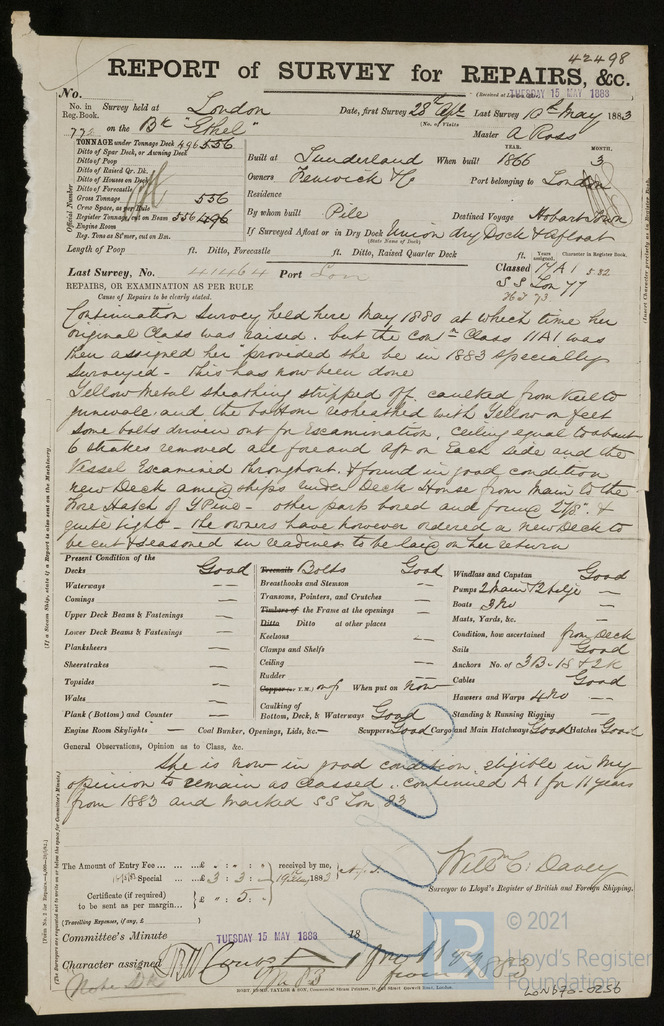 42498
REPORT of SURVEY for REPAIRS, &c.
No. (Received at TUESDAY 15 MAY 1883
No. in Reg. Book. Survey held at London Date, first Survey 28th Apl Last Survey 10th May 1883
(No. of Visits
772 on the Bk "Ethel" Master A Ross
TONNAGE under Tonnage Deck 496 556
Ditto of Spar Deck, or Awning Deck
Ditto of Poop
Ditto of Raised Qr. Dk.
Ditto of Houses on Deck
Ditto of Forecastle
Gross Tonnage 556
Crew Space, as per Rule
Register Tonnage, cut on Beam 556 496
Engine Room
Reg. Tons as St'mer, cut on Bm.
Official Number
YEAR. MONTH.
Built at Sunderland When built 1866 3
Owners Fenwick & C Port belonging to London
Residence
By whom built Pile Destined Voyage Hobart Town
If Surveyed Afloat or in Dry Dock Union dry Dock & afloat
(State Name of Dock)
Length of Poop ft. Ditto, Forecastle ft. Ditto, Raised Quarter Deck ft.
Years assigned. Character in Register Book.
Last Survey, No. 41464 Port Lon Classed 11 A 1 5.82
SS Lon 77
REPAIRS, OR EXAMINATION AS PER RULE
Cause of Repairs to be clearly stated.
Continuation Survey held here May 1880 at which time her
original Class was raised. but the conn Class 11A1 was
then assigned her provided she be in 1883 specially
surveyed - This has now been done
Yellow Metal sheathing stripped off. caulked from keel to
gunwale and the bottom resheathed with Yellow on felt
some bolts driven out for Examination, Ceiling equal to about
6 strakes removed all fore and aft on Each side and the
Vessel Examined throughout, & found in good condition
new Deck amidships under Deck House from Main to the
Fore Hatch of Y Pine - other part bored and found 2 7/8". &
quite tight - The owners have however ordered a new Deck to
be cut & seasoned in readiness to be laid on her return
Present Condition of the
Decks Good
Waterways —
Comings —
Upper Deck Beams & Fastenings —
Lower Deck Beams & Fastenings —
Planksheers —
Sheerstrakes —
Topsides —
Wales —
Plank (Bottom) and Counter —
Engine Room Skylights — Coal Bunker, Openings, Lids, &c. — Scuppers Good Cargo and Main Hatchways Good Hatches Good
Treenails Bolts Good
Breasthooks and Stemson —
Transoms, Pointers, and Crutches —
Timbers of the Frame at the openings —
Ditto Ditto at other places —
Keelsons —
Clamps and Shelfs —
Ceiling —
Rudder —
Copper (or Y.M.) on f When put on Now
Caulking of Bottom, Deck, & Waterways Good
Windlass and Capstan Good
Pumps 2 main & 2 bilge —
Boats 3 No —
Masts, Yards, &c. —
Condition, how ascertained from Deck
Sails Good
Anchors No. of 3B. 1S & 2K
Cables Good
Hawsers and Warps 4 No —
Standing & Running Rigging —
General Observations, Opinion as to Class, &c.
She is now in good condition, eligible in my
opinion to remain as classed. continued A 1 for 11 years
from 1883 and marked SS Lon 83
The Amount of Entry Fee ... £ : : received by me,
Special ... £ 3 : 3 : 1883
Certificate (if required) to be sent as per margin... £ " : 5 :
(Travelling Expenses, if any, £ )
Willm C. Davey
Surveyor to Lloyd's Register of British and Foreign Shipping.
Committee's Minute TUESDAY 15 MAY 1883 18
Character assigned Cont A 1 for 11 yrs
from 1883
Note Dk
© 2021
Lloyd's Register
Foundation
LON890-0256